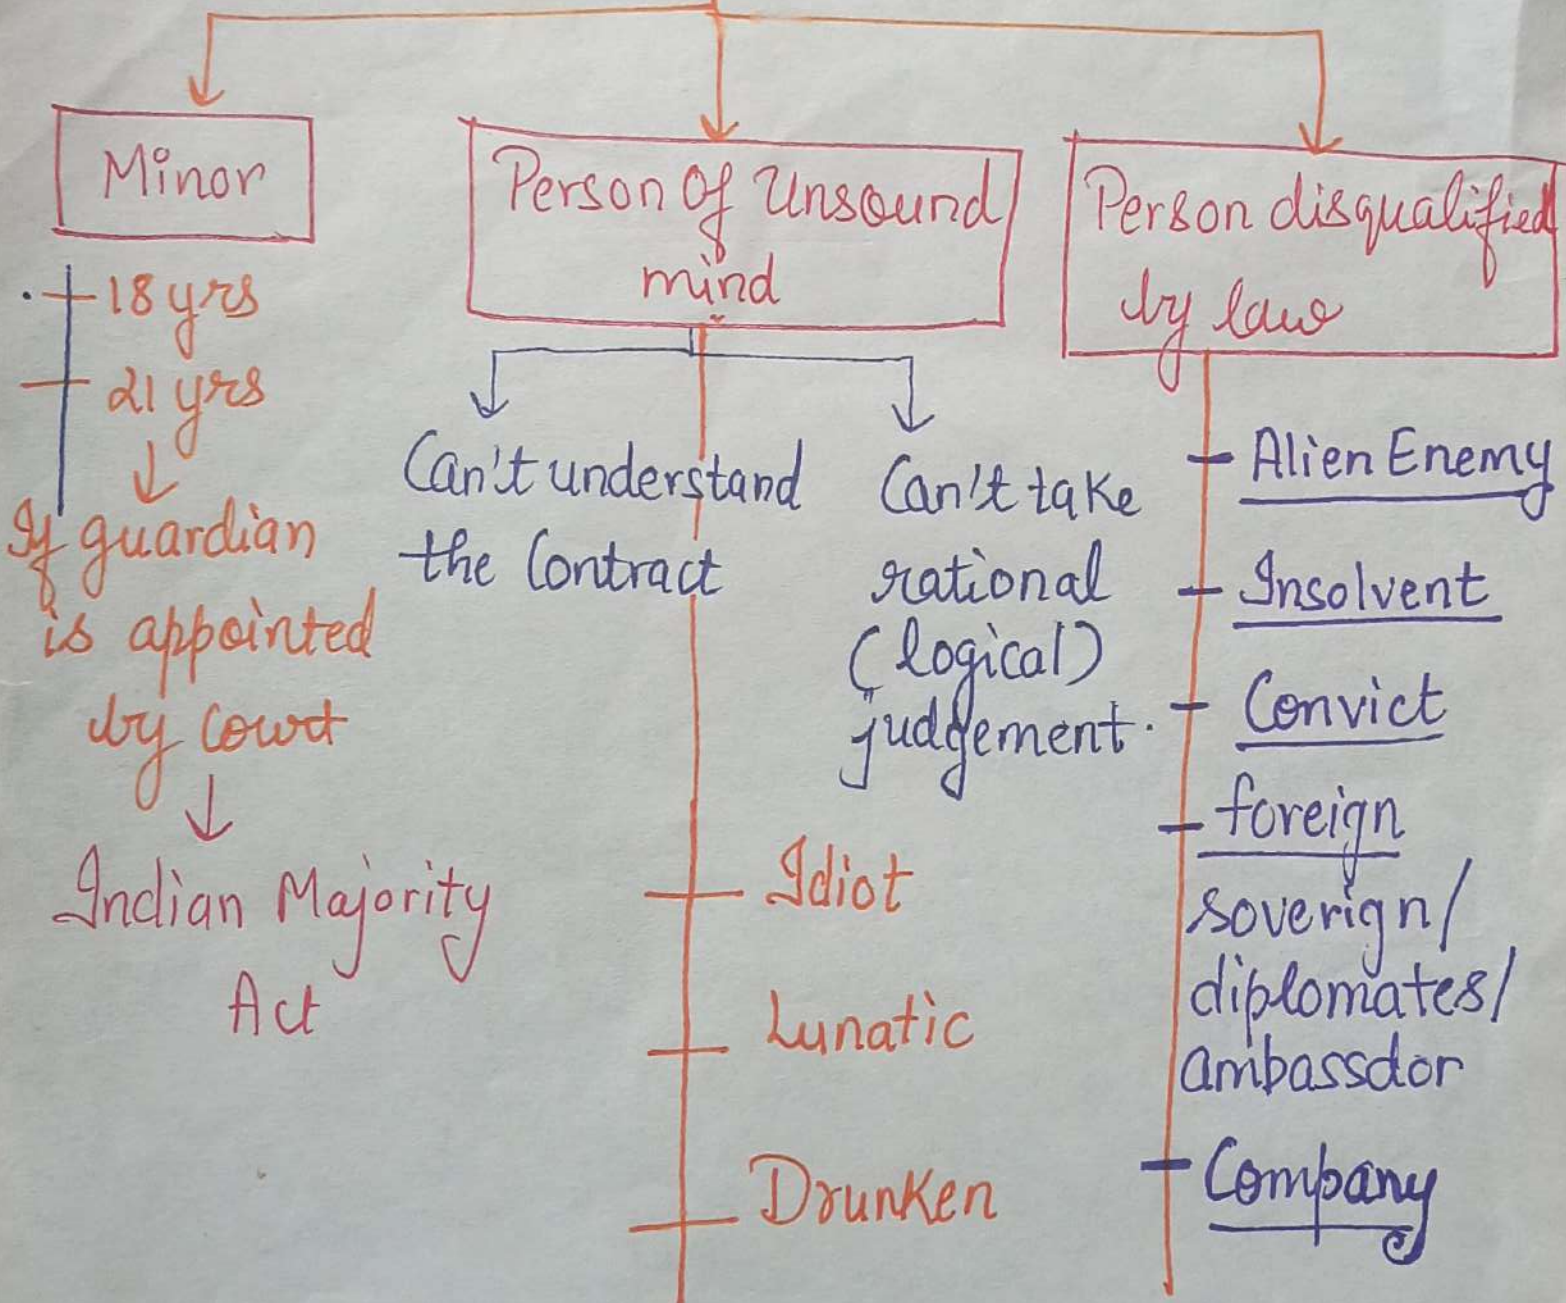 Minor
18 yrs
21 yrs
If guardian
is appointed
by court
Indian Majority
Act
Person Of Unsound
mind
Can't understand
the Contract
Can't take
rational
(logical)
judgement.
Idiot
Lunatic
Drunken
Person disqualified
by law
Alien Enemy
Insolvent
Convict
foreign
soverign/
diplomates/
ambassdor
Company